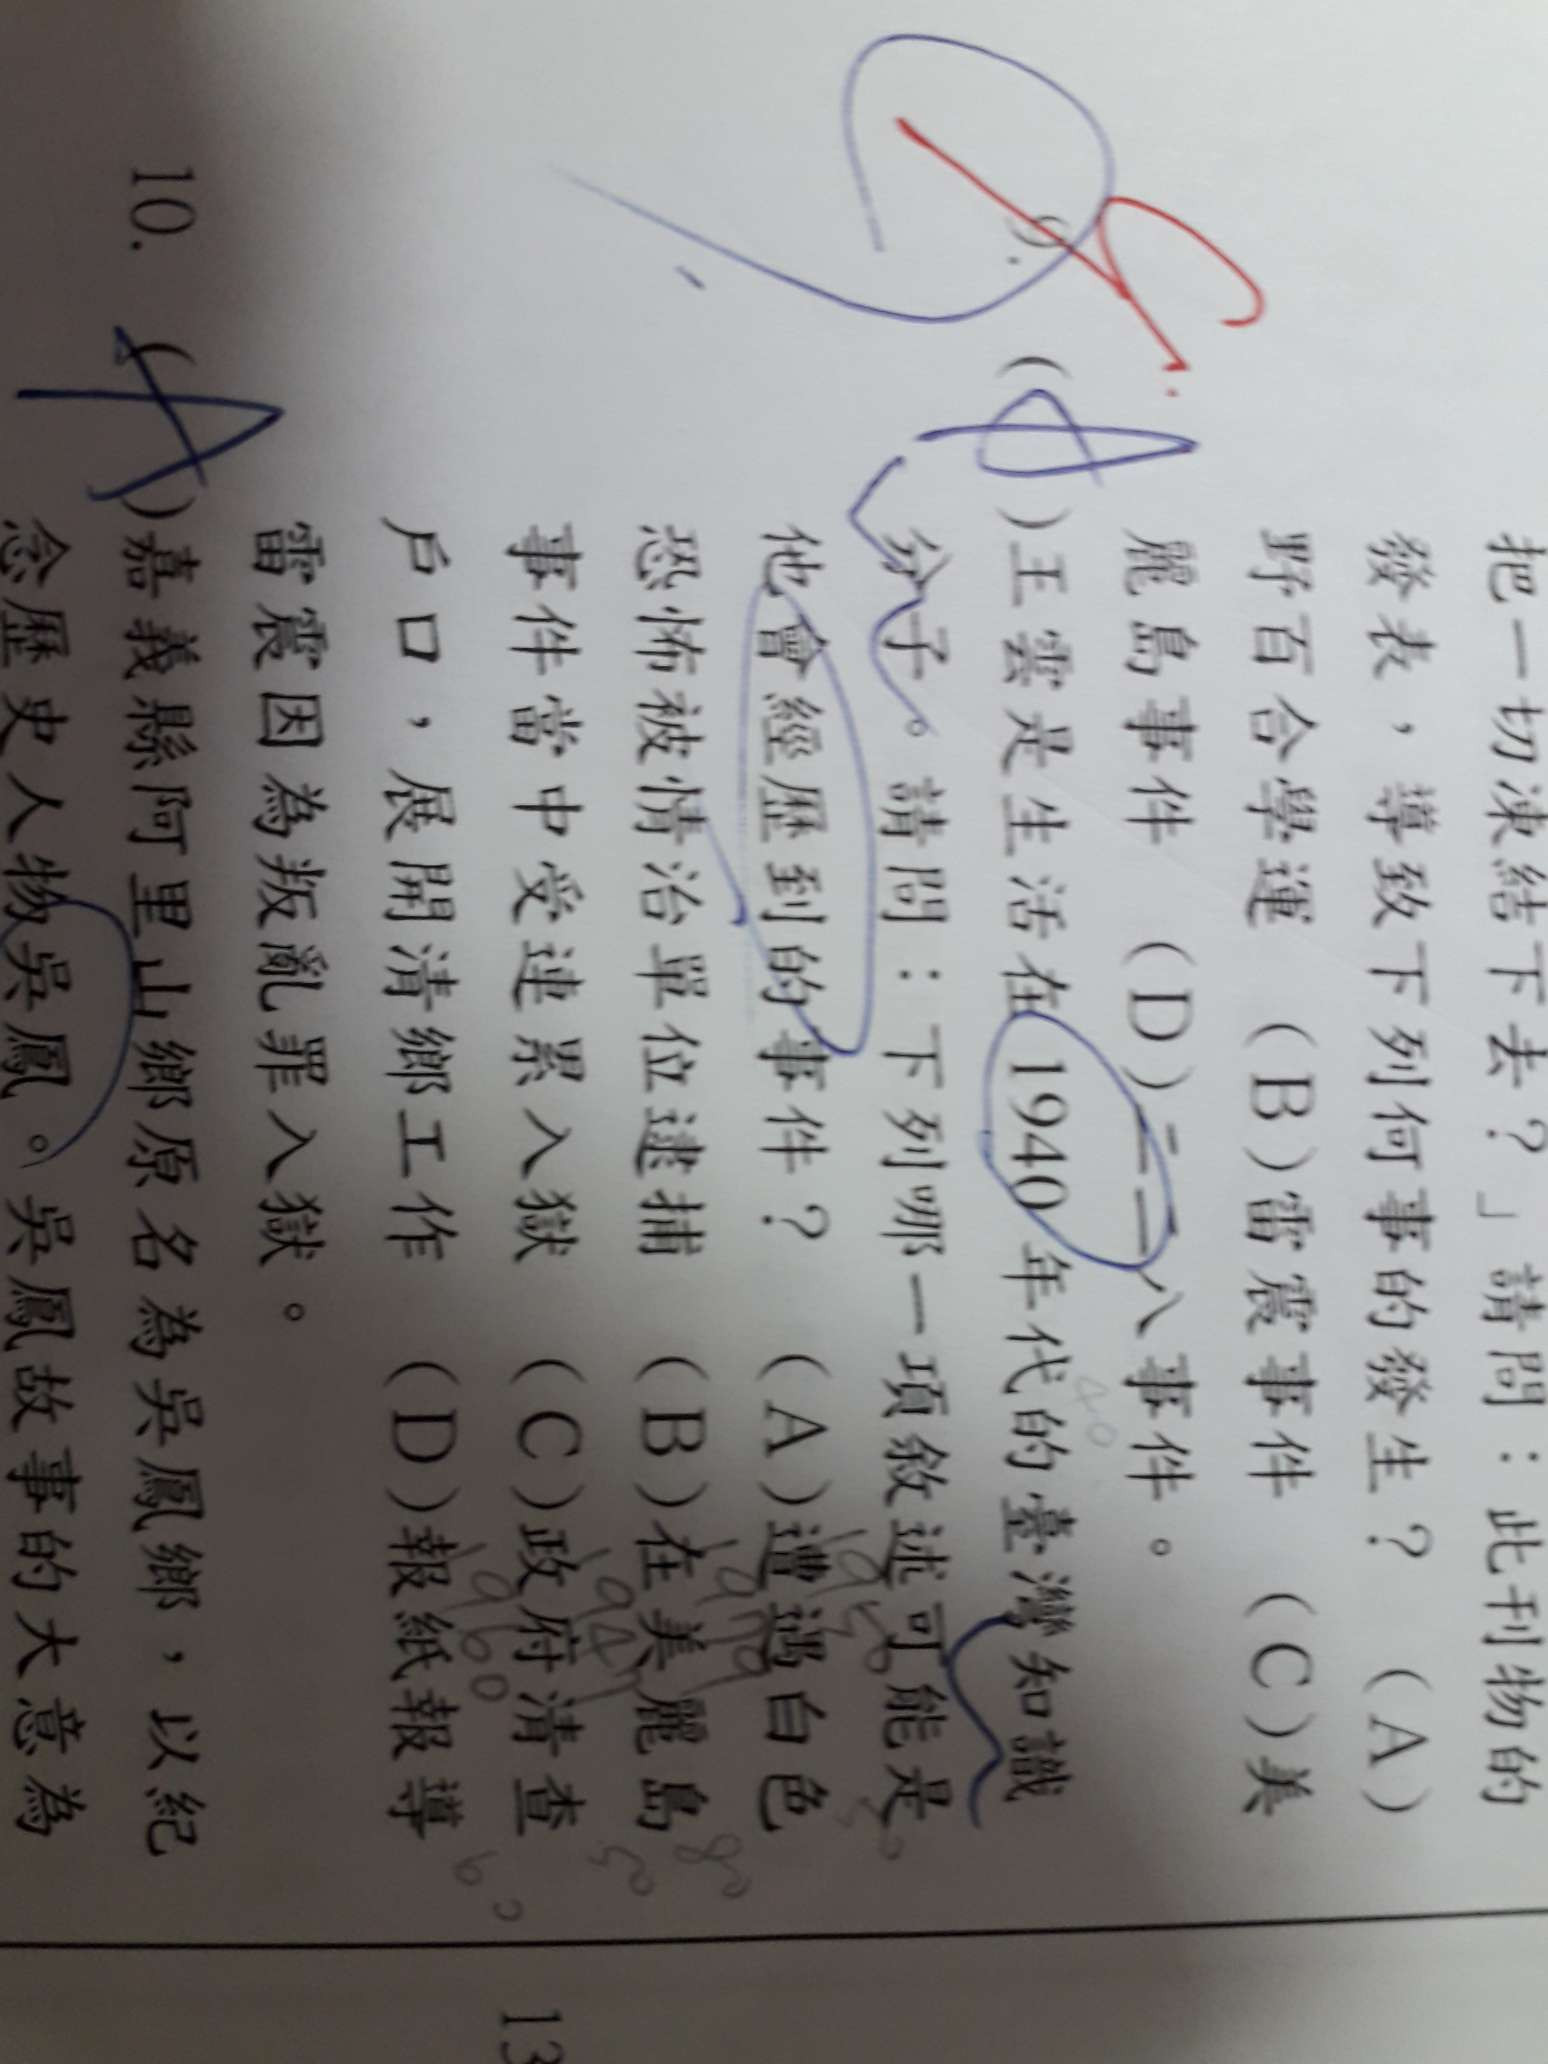 把一切凍結下去？」請問：此刊物的
發表，導致下列何事的發生？ (A)
野百合學運 (B)雷震事件 (C)美
麗島事件 (D)二二八事件。
9. ( A )王雲是生活在1940年代的臺灣知識
分子。請問：下列哪一項敘述可能是
他會經歷到的事件？ (A)遭遇白色
恐怖被情治單位逮捕 (B)在美麗島
事件當中受連累入獄 (C)政府清查
戶口，展開清鄉工作 (D)報紙報導
雷震因為叛亂罪入獄。
10. ( A )嘉義縣阿里山鄉原名為吳鳳鄉，以紀
念歷史人物吳鳳。吳鳳故事的大意為
13